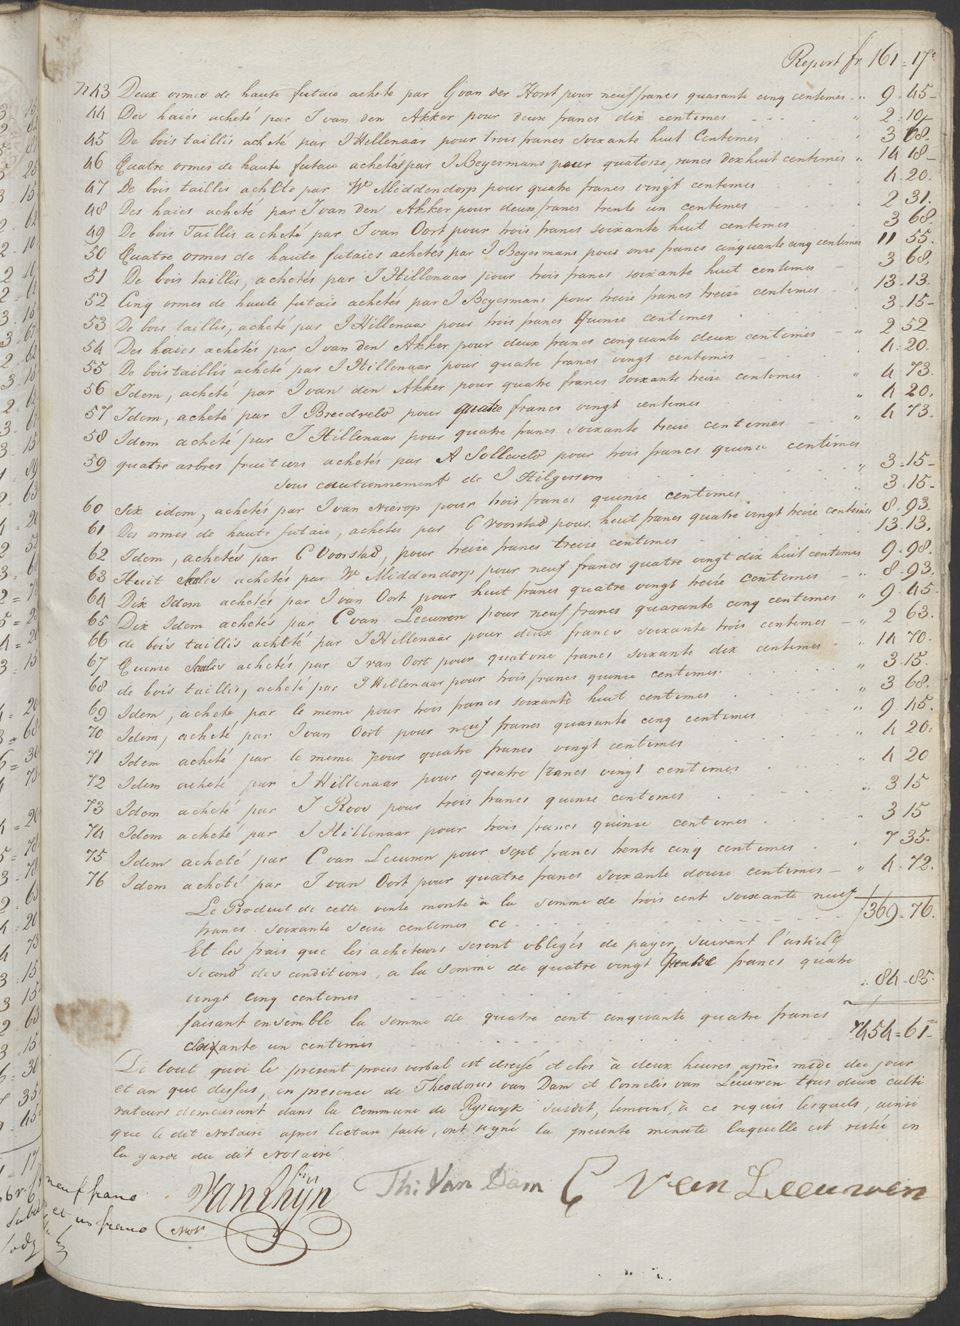 Report fr 161 = 17c
N 43 Deux ormes de haute futaie acheté par G van der Horst pour neuf francs quarante cinq centimes - 9 - 45 -
44 Des haies acheté par J van den Akker pour deux francs dix centimes - - - 2 - 10 -
45 De bois taillis acheté par J Hillenaar pour trois francs soixante huit Centimes 3 68 -
46 Quatre ormes de haute futaie achetés par J Beyersmans pour quatorze francs dixhuit centimes 14 18 -
47 De bois tailles acheté par W Middendorp pour quatre francs vingt centimes 4 - 20 -
48 Des haies acheté par J van den Akker pour deux francs trente un centimes - 2 31 -
49 De bois Taillis acheté par J van Oort pour trois francs soixante huit centimes - 3 68
50 Quatre ormes de haute futaies achetés par J Beyersmans pour onze francs cinquante cinq centimes 11 55 -
51 De bois taillis, achetés par J Hillenaar pour trois francs soixante huit centimes - 3 68 -
52 Cinq ormes de haute futaie achetés par J Beyersmans pour treize francs treize centimes - 13 - 13 -
53 De bois taillis, acheté par J Hillenaar pour trois francs Quinze centimes 3 - 15 -
54 Des haies achetés par J van den Akker pour deux francs cinquante deux centimes - 2 52
55 De bois taillis acheté par J Hillenaar pour quatre francs vingt centimes - 4 - 20
56 Idem, acheté par J van den Akker pour quatre francs soixante treize centimes 4 73 -
57 Idem, acheté par J Breedveld pour quatre francs vingt centimes 4 20
58 Idem acheté par J Hillenaar pour quatre francs soixante treize centimes - 4 73 -
59 quatre arbres fruitiers achetés par A Solleveld pour trois francs quinze centimes
sous cautionnement de J Hilgersom 3 - 15 -
60 Six idem, achetés par J van Nierop pour trois francs quinze centimes 3 - 15 -
61 Des ormes de haute futaie, achetés par C Voorstad pour huit francs quatre vingt treize centimes 8 - 93
62 Idem, achetés par C Voorstad, pour treize francs treize centimes 13 - 13 -
63 Huit Saules achetés par W Middendorp pour neuf francs quatre vingt dix huit centimes 9 - 98 -
64 Dix Idem achetés par J van Oort pour huit francs quatre vingt treize centimes - 8 - 93
65 Dix Idem achetés par C van Leeuwen pour neuf francs quarante cinq centimes - 9 - 45 -
66 de bois taillis acheté par J Hillenaar pour deux francs soixante trois centimes - 2 63
67 Quinze Saules achetés par J van Oort pour quatorze francs soixante dix centimes 14 70 -
68 de bois taillis, acheté par J Hillenaar pour trois francs quinze centimes 3 - 15 -
69 Idem, acheté par le meme pour trois francs soixante huit centimes 3 68 -
70 Idem, acheté par J van Oort pour neuf francs quarante cinq centimes 9 - 45 -
71 Idem acheté par le meme pour quatre francs vingt centimes 4 20 -
72 Idem acheté par J Hillenaar pour quatre francs vingt centimes 4 20
73 Idem acheté par J Roos pour trois francs quinze centimes 3 15
74 Idem acheté par J Hillenaar pour trois francs quinze centimes 3 15
75 Idem acheté par C van Leeuwen pour sept francs trente cinq centimes 7 35 -
76 Idem acheté par J van Oort pour quatre francs soixante douze centimes - 4 - 72 -
Le Produit de cette vente monte à la somme de trois cent soixante neuf
francs soixante seize centimes ce 369 - 76 -
Et les frais que les acheteurs seront obligés de payer, suivant l'article
second des conditions, a la somme de quatre vingt quatre francs quatre
vingt cinq centimes 84 - 85 -
faisant ensemble la somme de quatre cent cinquante quatre francs
soixante un centimes 454 = 61
De tout quoi le present proces verbal est dressé et clos à deux heures après midi des jour
et an que dessus, en presence de Theodorus van Dam et Cornelis van Leeuwen tous deux culti
vateurs demeurant dans la Commune de Ryswyk susdit, temoins, à ce requis lesquels, ainsi
que le dit Notaire apres lecture faite, ont signé la presente minute laquelle est restée en
la garde du dit Notaire
Van Rhijn Th: Van Dam C Van Leeuwen
Notr
neuf franc
et un franc